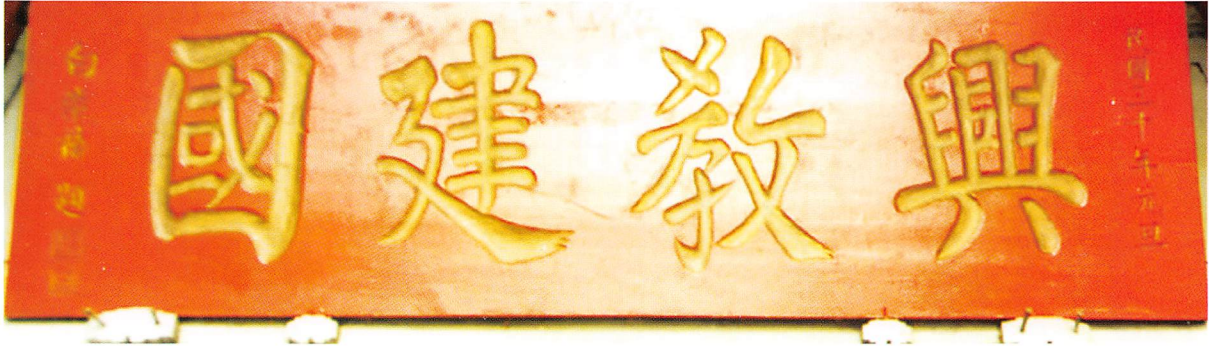 民國三十年元旦
興教建國
白崇禧題